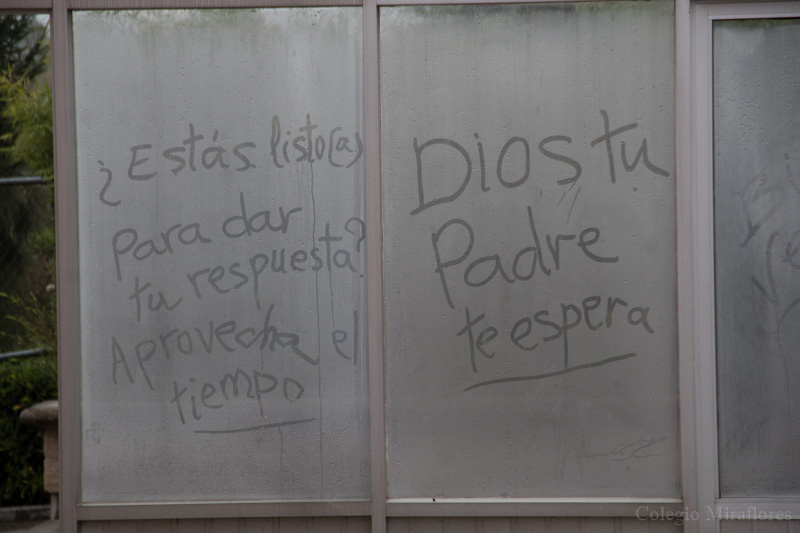 ¿Estás listo(a)
para dar
tu respuesta?
Aprovecha el
tiempo
Dios tu
Padre
te espera
Colegio Miraflores